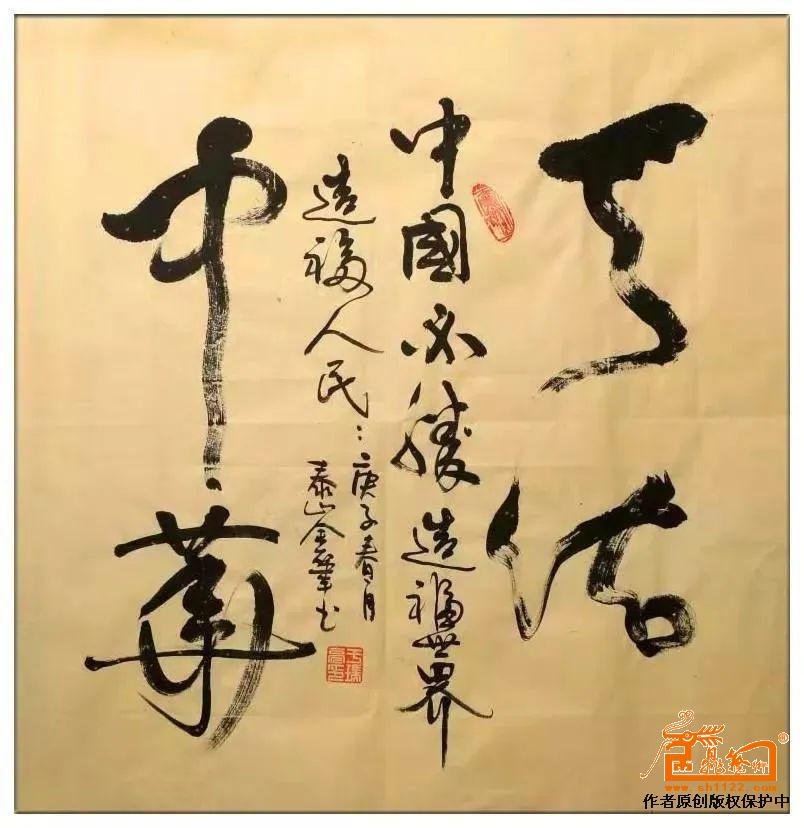 天佑
中華
中國必勝造福世界
造福人民
庚子春月
泰山金華书
www.sh1122.com
作者原创版权保护中